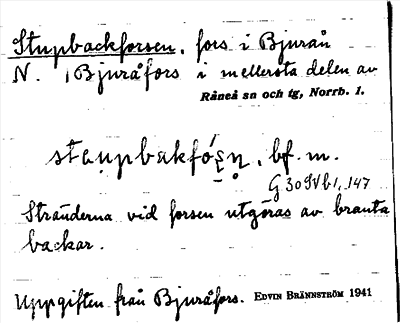 Stupbackforsen, fors i Bjuraån
N. Bjuråfors i mellersta delen av
Råneå sn och tg, Norrb. l.
bf. m.
Stränderna vid forsen utgöras av branta
backar.
Uppgiften från Bjuråfors. EDVIN BRÄNNSTRÖM 1941